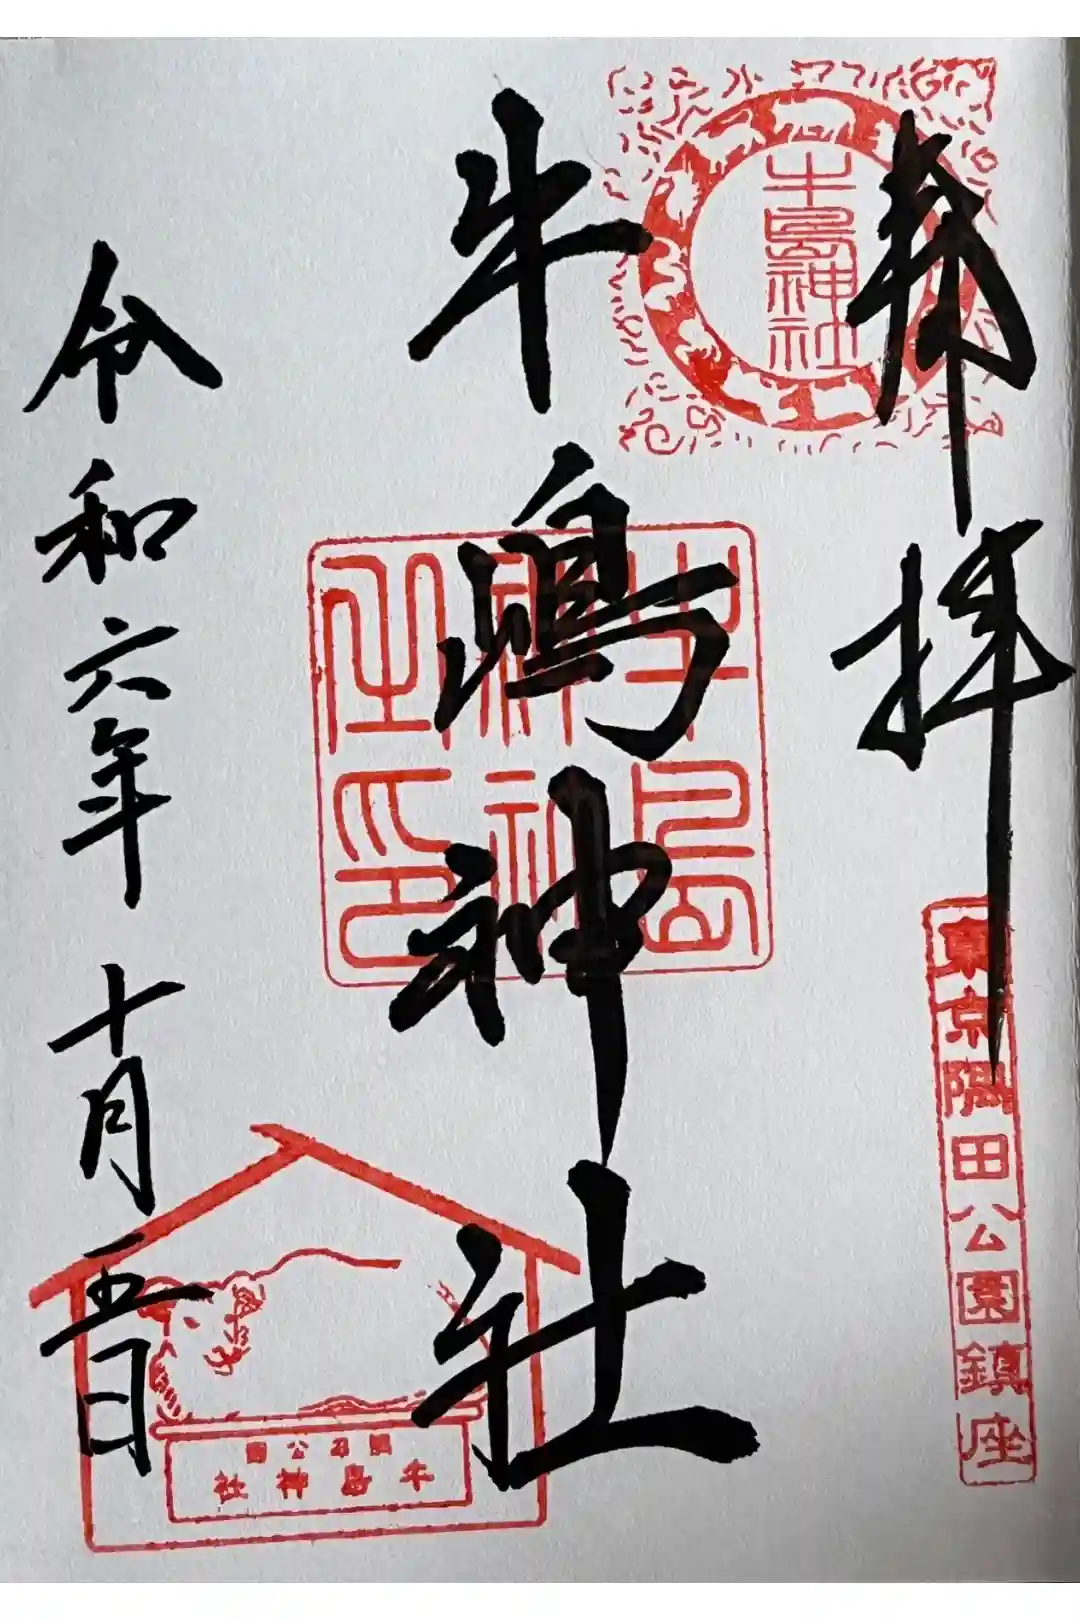 奉拝
牛島神社
東京隅田公園鎮座
牛嶋神社
牛島
神社
之印
令和六年十月五日
隅田公園
牛島神社